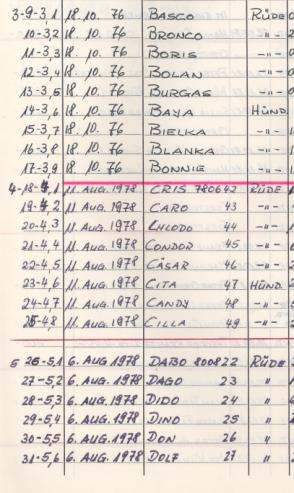 3-9-3,1 18.10.76 BASCO RÜDE
10-3,2 18.10.76 BRONCO -"-
11-3,3 18.10.76 BORIS -"-
12-3,4 18.10.76 BOLAN -"-
13-3,5 18.10.76 BURGAS -"-
14-3,6 18.10.76 BAYA HÜND.
15-3,7 18.10.76 BIELKA -"-
16-3,8 18.10.76 BLANKA -"-
17-3,9 18.10.76 BONNIE -"-
4-18-4,1 11. AUG. 1978 CRIS 780642 RÜDE
19-4,2 11. AUG. 1978 CARO 43 -"-
20-4,3 11. AUG. 1978 CHLODO 44 -"-
21-4,4 11. AUG. 1978 CONDOR 45 -"-
22-4,5 11. AUG. 1978 CÄSAR 46 -"-
23-4,6 11. AUG. 1978 CITA 47 HÜND.
24-4,7 11. AUG. 1978 CANDY 48 -"-
25-4,8 11. AUG. 1978 CILLA 49 -"-
5 26-5,1 6. AUG. 1978 800822 RÜDE
27-5,2 6. AUG. 1978 DAGO 23 "
28-5,3 6. AUG. 1978 DIDO 24 "
29-5,4 6. AUG. 1978 DINO 25 "
30-5,5 6. AUG. 1978 DON 26 "
31-5,6 6. AUG. 1978 DOLF 27 "